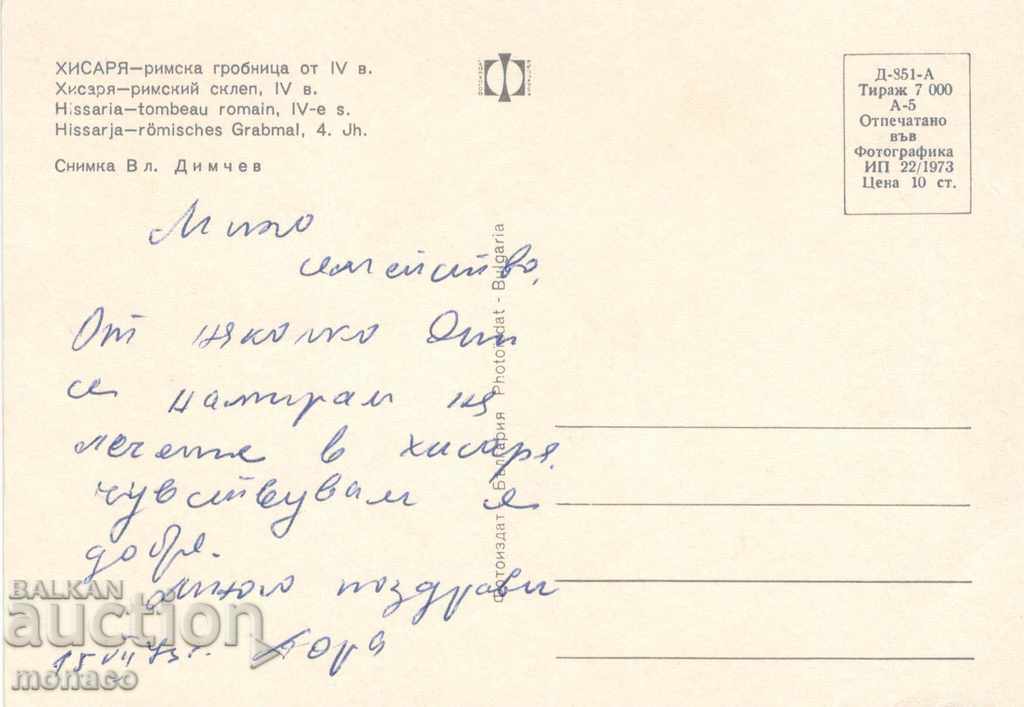 ХИСАРЯ—римска гробница от IV в.
Хисаря—римский склеп, IV в.
Hissaria—tombeau romain, IV-e s.
Hissarja—römisches Grabmal, 4. Jh.
Снимка Вл. Димчев
ФОТОИЗДАТ
БЪЛГАРИЯ
Д-851-А
Тираж 7 000
А-5
Отпечатано
във
Фотографика
ИП 22/1973
Цена 10 ст.
Фотоиздат България Photoizdat - Bulgaria
Мило
семейство,
От няколко дни
се намирам на
лечение в хисаря.
чувствувам се
добре.
Много поздрави
15 VII 73 г.
BALKAN
auction
monaco